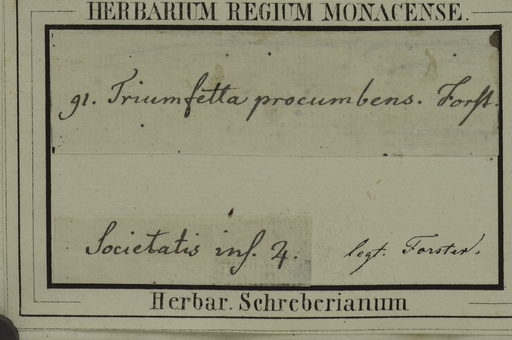 HERBARIUM REGIUM MONACENSE.
91. Triumfetta procumbens. Forst.
Societatis ins. 4. legt. Forster.
Herbar. Schreberianum